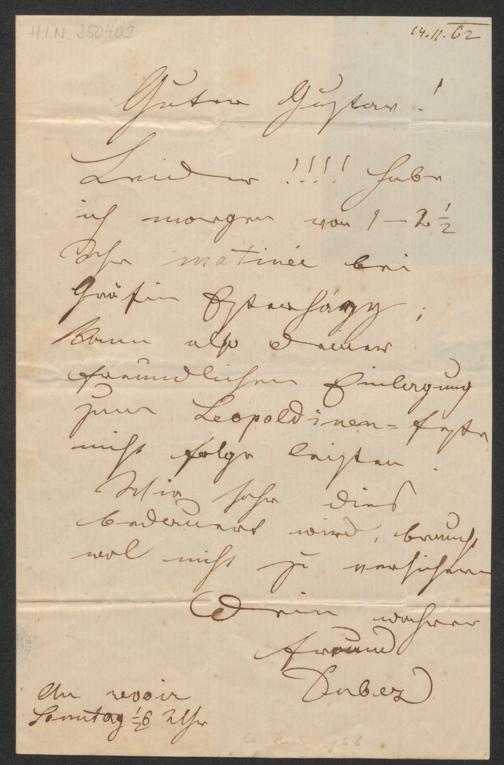 H.I.N. 250402
14.11.62
Guter Gustav!
Leider !!!! habe
ich morgen von 1–2½
Uhr matinée bei
Gräfin Esterházy;
kann also Deiner
freundlichen Einladung
zum Leopoldinen=feste
nicht folge leisten.
Wie sehr dies
bedauert wird, brauch
wol nicht zu versichern
Dein wahrer
Freund
Au revoir
Sonntag ½6 Uhr